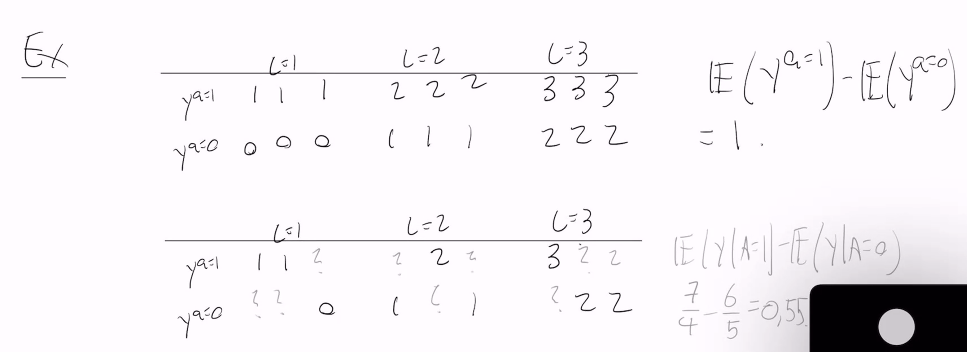 Ex
L=1 L=2 L=3
Y^{a=1} 1 1 1 2 2 2 3 3 3
Y^{a=0} 0 0 0 1 1 1 2 2 2
E(Y^{a=1}) - E(Y^{a=0})
= 1.
L=1 L=2 L=3
Y^{a=1} 1 1 ? ? 2 ? 3 ? ?
Y^{a=0} ? ? 0 1 ? 1 ? 2 2
E(Y|A=1] - E(Y|A=0)
7/4 - 6/5 = 0,55